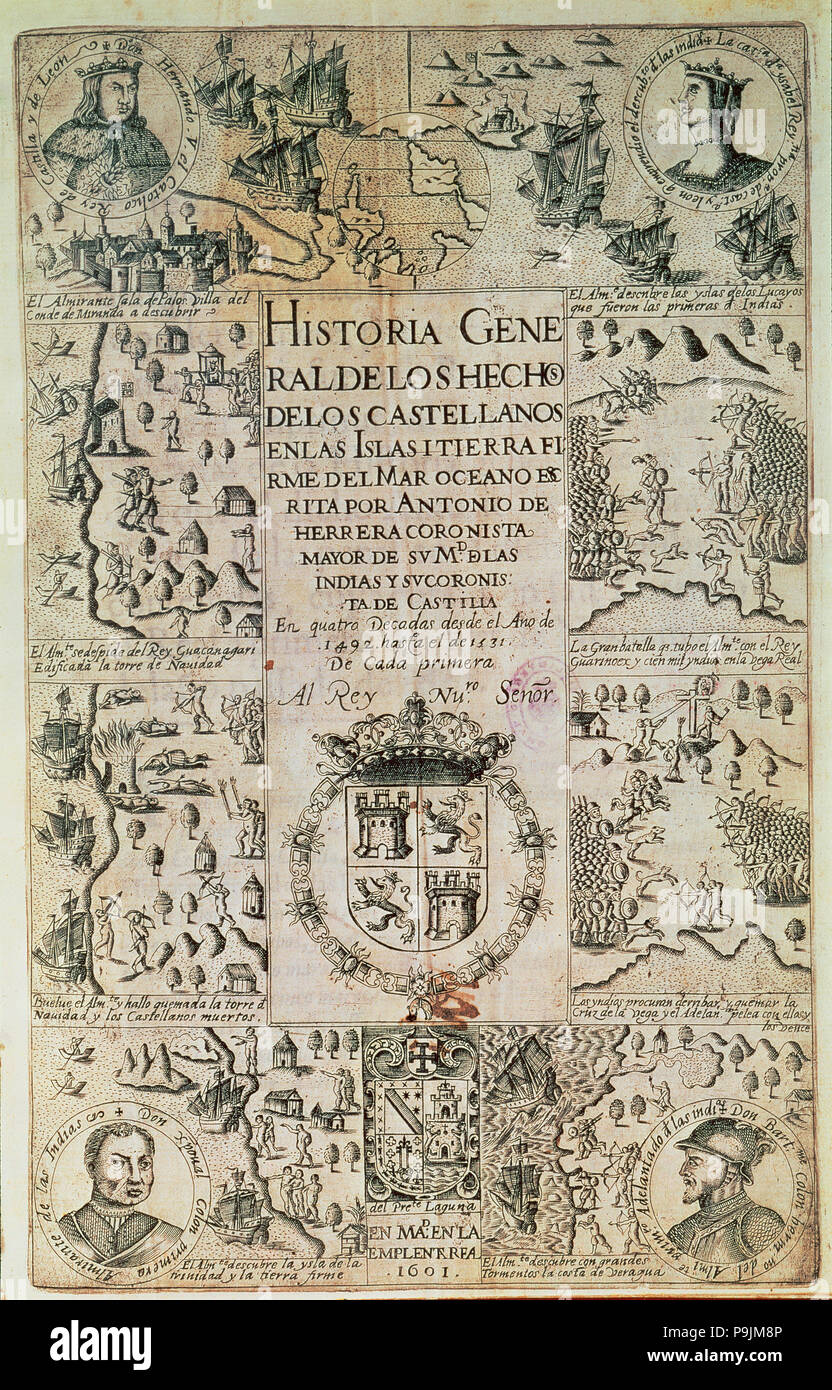 ✠ Don Hernando V el Catolico Rey de Castilla y de Leon
la catca dª ysabel Reyna
El Almirante sala de Palos villa del
Conde de Miranda a descubrir
El Alm.te descubre las yslas de los Lucayos
que fueron las primeras d Indias.
HISTORIA GENE
RAL DE LOS HECHOS
DE LOS CASTELLANOS
EN LAS ISLAS I TIERRA FI
RME DEL MAR OCEANO ESC
RITA POR ANTONIO DE
HERRERA CORONISTA
MAYOR DE SV M.D D LAS
INDIAS Y SV CORONIS
TA DE CASTILLA
En quatro Decadas desde el Año de
1492 hasta el de 1531.
De Cada primera
Al Rey Nu.ro Señor
El Alm.te se despida del Rey Guacanagari
Edificada la torre de Navidad
La Gran batalla q tubo el Alm.te con el Rey
Guarinoex y cien mil yndios en la Vega Real
Buelue el Alm.te y hallo quemada la torre d
Navidad y los Castellanos muertos.
Los yndios procuran derribar, y quemar la
Cruz de la Vega y el Adelan.do pelea con ellos y
los vence
✠ Don Xpoual Colon primero Almirante de las Indias
Don Bart.me Colon herm.no del Almi.te primero Adelantado d las indi.as
El Alm.te descubre la ysla de la
trinidad y la tierra firme
del Pret.e Laguna
EN MA.D EN LA
EMPLENTA REA
1601.
El Alm.te descubre con grandes
Tormentos la costa de Veragua
alamy
a
alamy
Image ID: P9JM8P
www.alamy.com